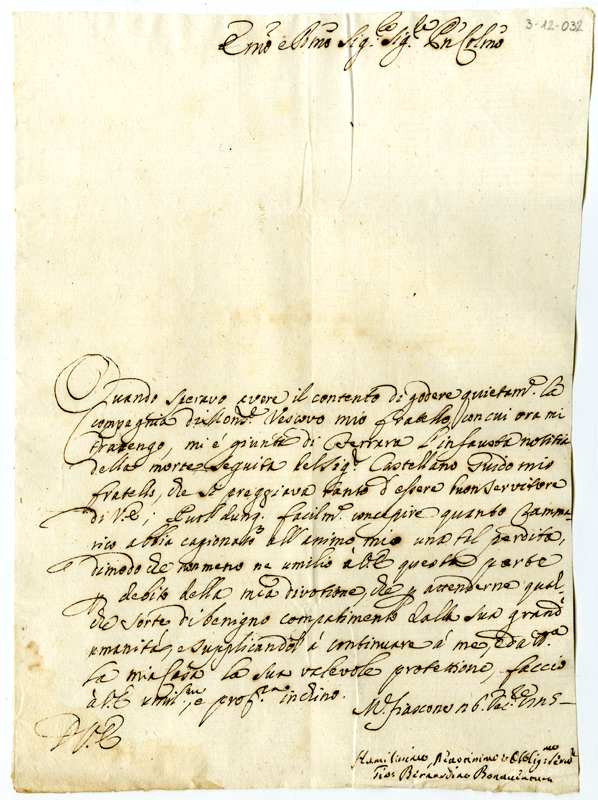 3-12-032
Em̃o e Rm̃o Sig.re Sig.re Pñ Colm̃o
Quando speravo avere il contento di godere quietam.te la
compagnia di Mons.r Vescovo mio fratello, con cui ora mi
trattengo, mi è giunta di Ferrara l'infausta notitia
della morte seguita del Sig.r Castellano Guido mio
fratello, che si preggiava tanto d'essere buon servitore
di V.E; Puol dunq. facilm.te concepire quanto ramma-
rico abbia cagionato all'animo mio una tal perdita,
dimodo che nommeno ne umilio à V.E questa parte
p debito della mia divotione che p attenderne qual
che sorte di benigno compatimento dalla sua grand'
umanità, e supplicandola à continuare à me, e da tt.a
la mia Casa la sua valevole protettione, faccio
à V.E umil.ma, e prof.ma inchino.
M.e fiascone 16
D V.E
Humilissimo Obblig.mo
Gio: Bernardino Bonaventura